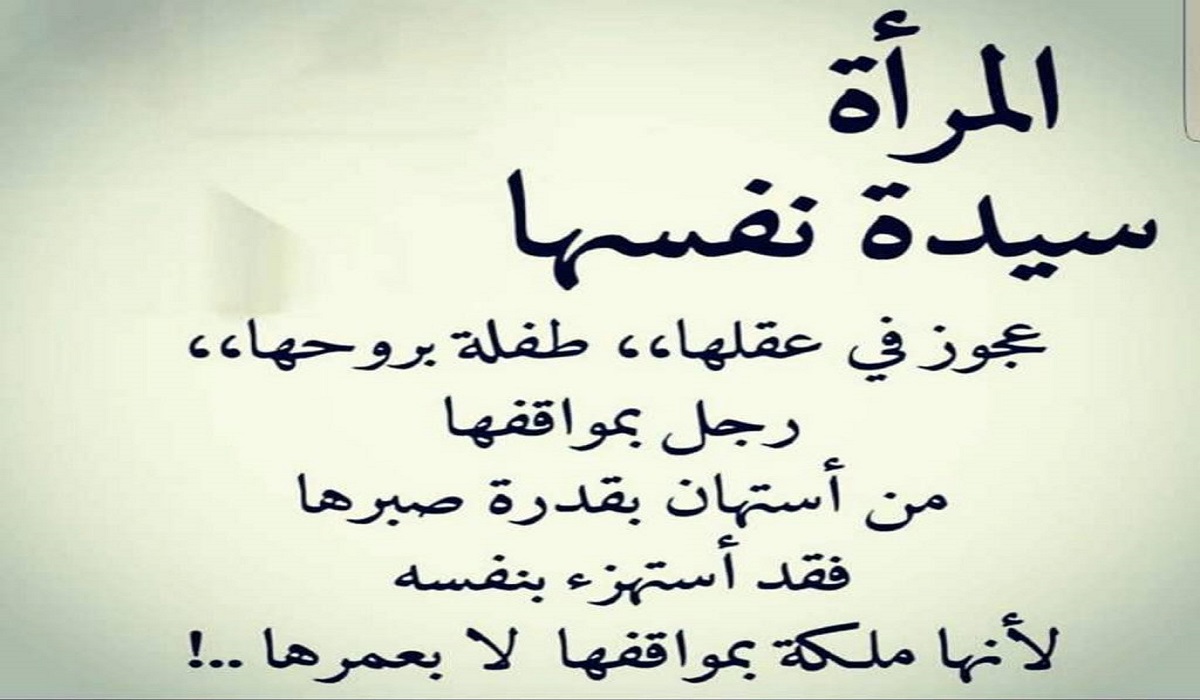 المرأة
سيدة نفسها
عجوز في عقلها،، طفلة بروحها،،
رجل بمواقفها
من أستهان بقدرة صبرها
فقد أستهزء بنفسه
لأنها ملكة بمواقفها لا بعمرها ..!